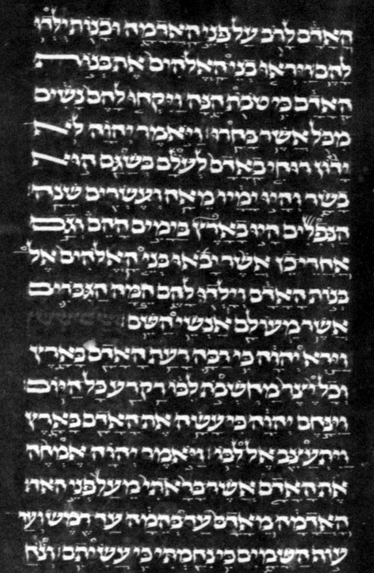 האדם לרב על פני האדמה ובנות ילדו
להם ויראו בני האלהים את בנות
האדם כי טבת הנה ויקחו להם נשים
מכל אשר בחרו ויאמר יהוה לא
ידון רוחי באדם לעלם בשגם הוא
בשר והיו ימיו מאה ועשרים שנה
הנפלים היו בארץ בימים ההם וגם
אחרי כן אשר יבאו בני האלהים אל
בנות האדם וילדו להם המה הגברים
אשר מעולם אנשי השם
וירא יהוה כי רבה רעת האדם בארץ
וכל יצר מחשבת לבו רק רע כל היום
וינחם יהוה כי עשה את האדם בארץ
ויתעצב אל לבו ויאמר יהוה אמחה
את האדם אשר בראתי מעל פני
האדמה מאדם עד בהמה עד רמש ועד
עוף השמים כי נחמתי כי עשיתם ונח